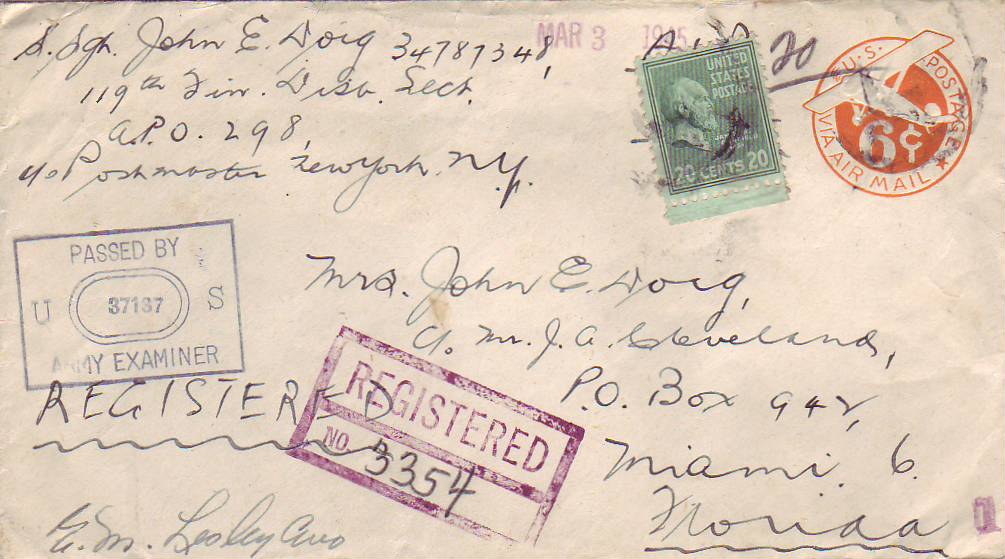 S. Sgt. John E. Doig 34787348,
119th Fin. Disb. Sect.
A.P.O. 298,
c/o Postmaster New York, N.Y.
MAR 3 1945
UNITED
STATES
POSTAGE
20 CENTS 20
20
U.S. POSTAGE
6¢
VIA AIR MAIL
PASSED BY
U 37187 S
ARMY EXAMINER
Mrs. John E. Doig,
c/o Mr. J. A. Cleveland,
P.O. Box 942,
Miami 6
Florida
REGISTERED
REGISTERED
NO. 3354
1